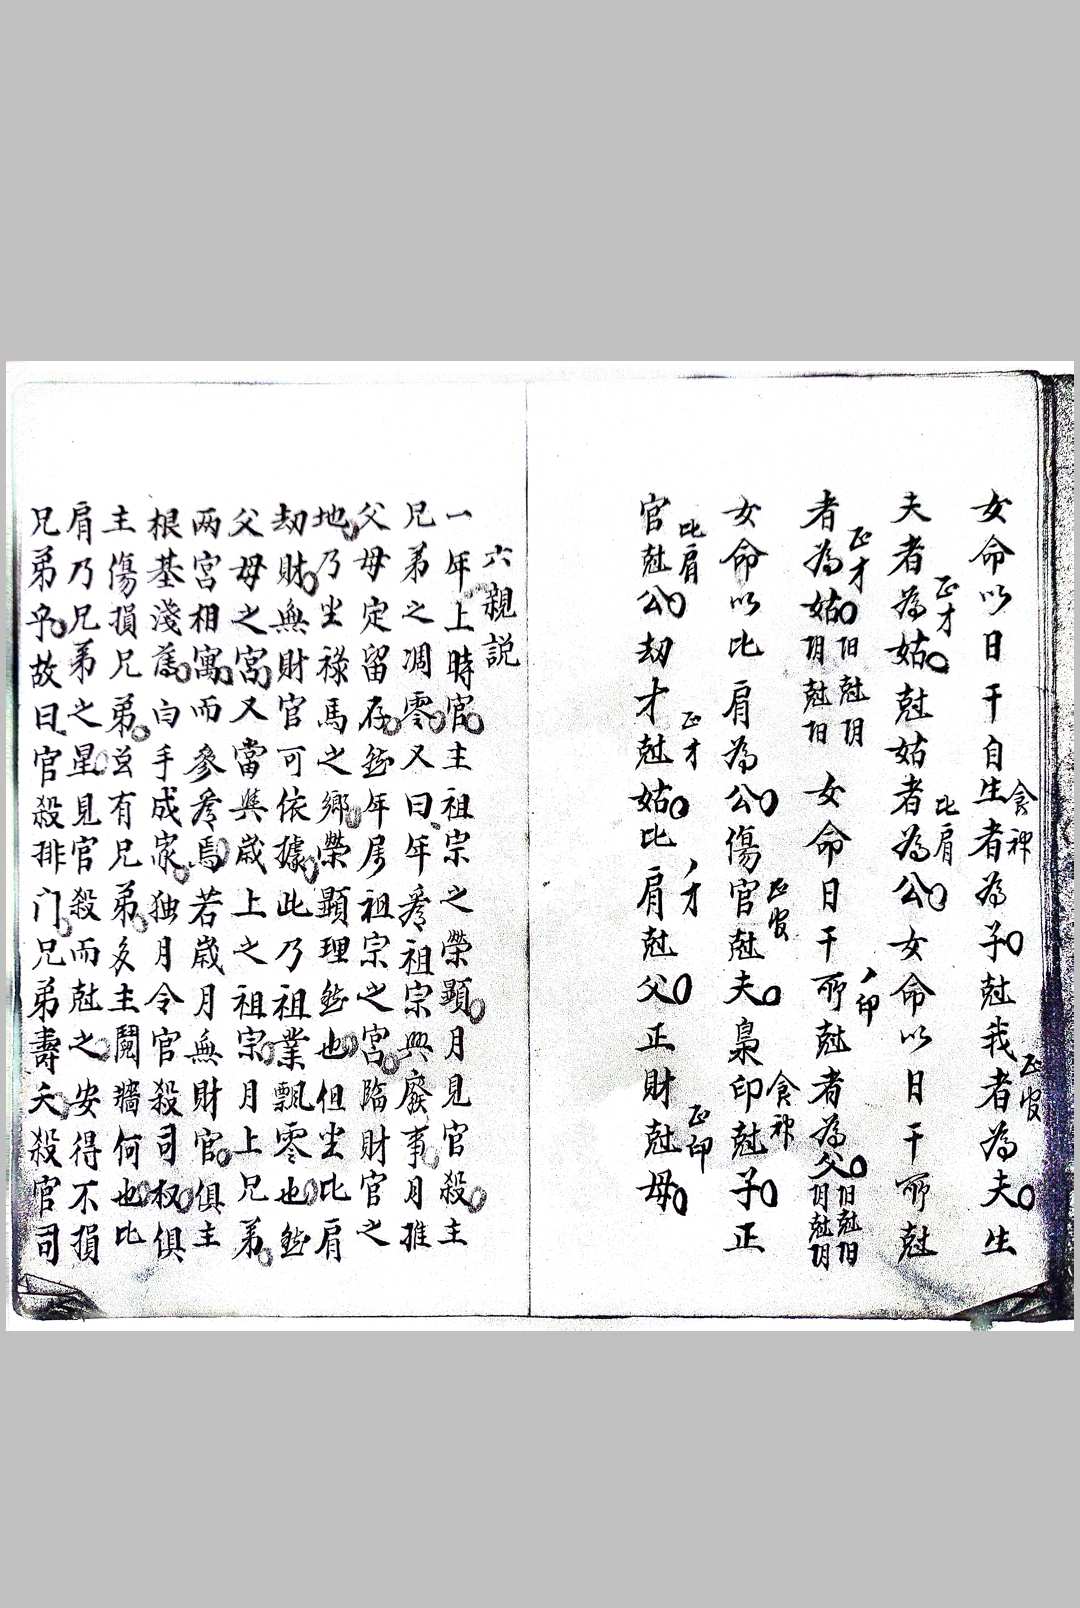 女命以日干自生者為子尅我者為夫生
食神
正官
夫者為姑尅姑者為公女命以日干所尅
正才
比肩
者為姑阳尅阴阴尅阳女命日干所尅者為父阳尅阳阴尅阴
正才
印
女命以比肩為公傷官尅夫梟印尅子正
正官
食神
官尅公劫才尅姑比肩尅父正財尅母
比肩
正才
才
正印
六親説
一年上時官主祖宗之榮顯月見官殺主
兄弟之凋零又曰年爲祖宗興廢事月推
父母定留存然年居祖宗之宮臨財官之
地乃坐祿馬之鄉榮顯理然也但坐比肩
劫財無財官可依據此乃祖業飄零也然
父母之宮又當與歲上之祖宗月上兄弟
两宮相寓而參考焉若歲月無財官俱主
根基淺薄白手成家独月令官殺司权俱
主傷損兄弟豈有兄弟多主鬩牆何也比
肩乃兄弟之星見官殺而尅之安得不損
兄弟乎故曰官殺排门兄弟壽夭殺官司